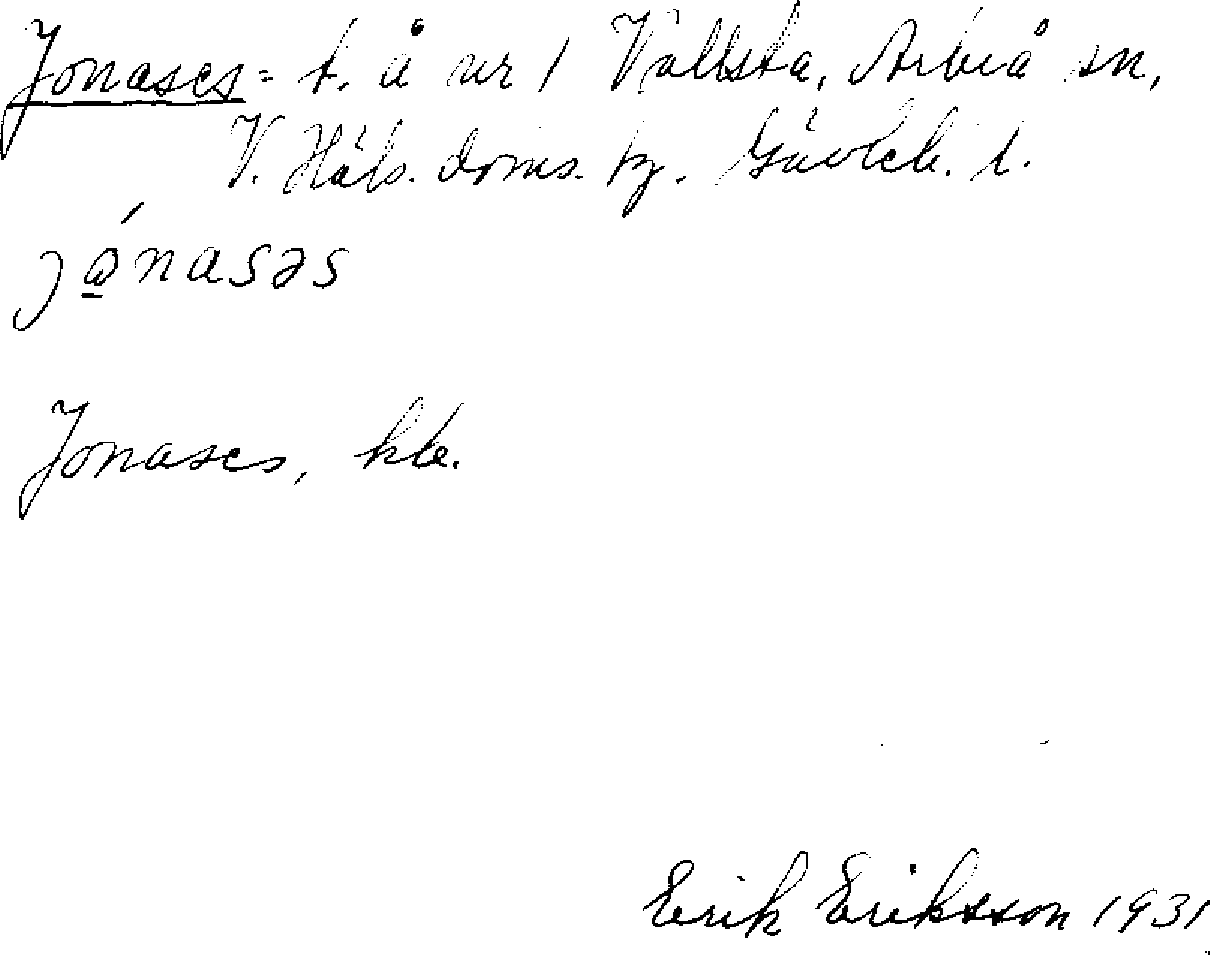 Jonases = t. å nr 1 Vallsta, Arbrå sn,
V. Häls. doms. Gävleb. l.
jónasəs
Jonases, hb.
Erik Eriksson 1931